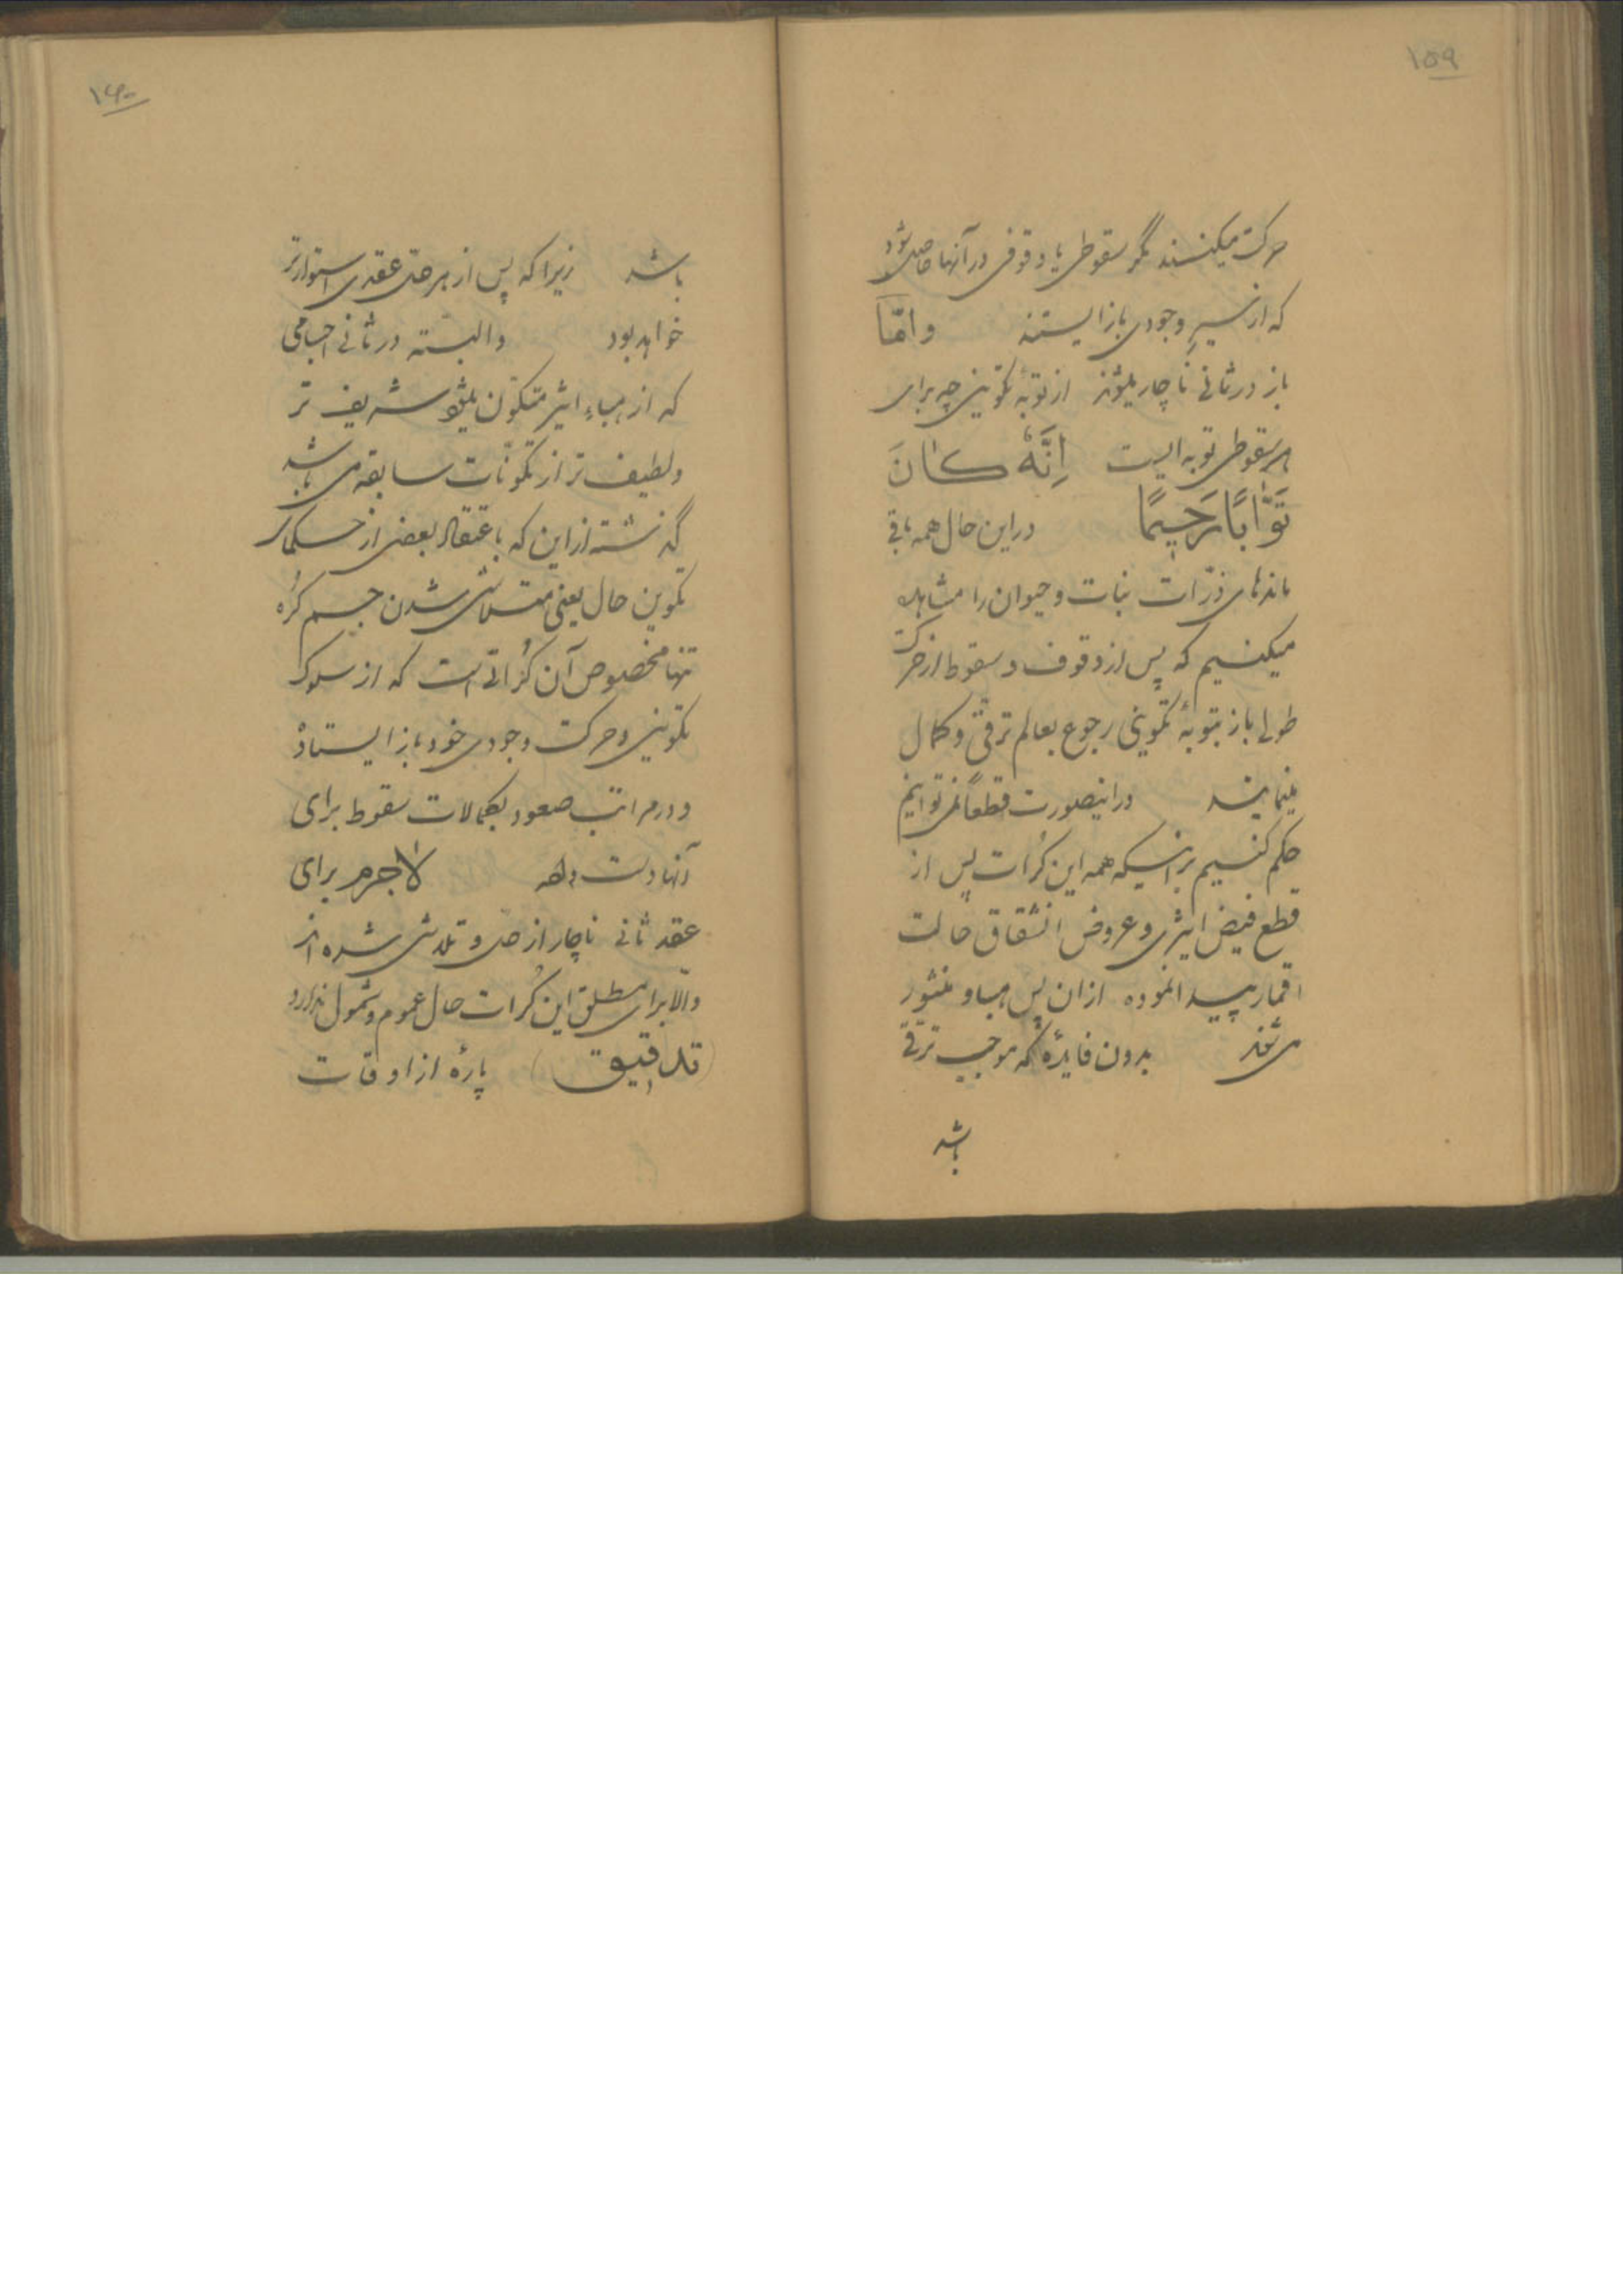 ۱۵۹
حرکت میکنند مگر سقوطی یا وقوفی در آنها حاصل شود
که از سیرِ وجودی باز ایستند وامّا
باز در ثانی ناچار میشوند از توبهٔ تکوینی چه برای
هر سقوطی توبه ایست اِنَّهُ كانَ
تَوّاباً رَحیماً در این حال همه باقی
ماندهای ذرّات نبات و حیوان را مشاهده
میکنیم که پس از وقوف و سقوط از حرکت
طولی باز بتوبهٔ تکوینی رجوع بعالم ترقّی و کمال
مینمایند در اینصورت قطعاً نمی توانیم
حکم کنیم بر اینکه همه این کُرات پس از
قطع فیض اثیری و عروض انشقاق حالت
اقمار پیدا نموده از ان پس هباء منثور
می شوند بدون فایدهٔ که موجب ترقّی
باشد
۱۶۰
باشد زیرا که پس از هر حلی عقدی استوارتر
خواهد بود و البتّه در ثانی اجسامی
که از هباءِ اثیر متکوّن میشود شریف تر
و لطیف تر از تکوّنات سابقه می باشد
گذشته از این که باعتقاد بعضی از حکما
تکوین حال یعنی متلاشی شدن جسم کُره
تنها مخصوص آن کُراتی است که از سلوک
تکوینی و حرکت وجودی خود باز ایستاده
و در مراتب صعود بکمالات سقوط برای
آنها دست دهد لاجرم برای
عقد ثانی ناچار از حل و تلاشی شده اند
و الّا برای مطلق این کُرات حال عموم و شمول ندارد
(تدقیق) پارهٔ از اوقات